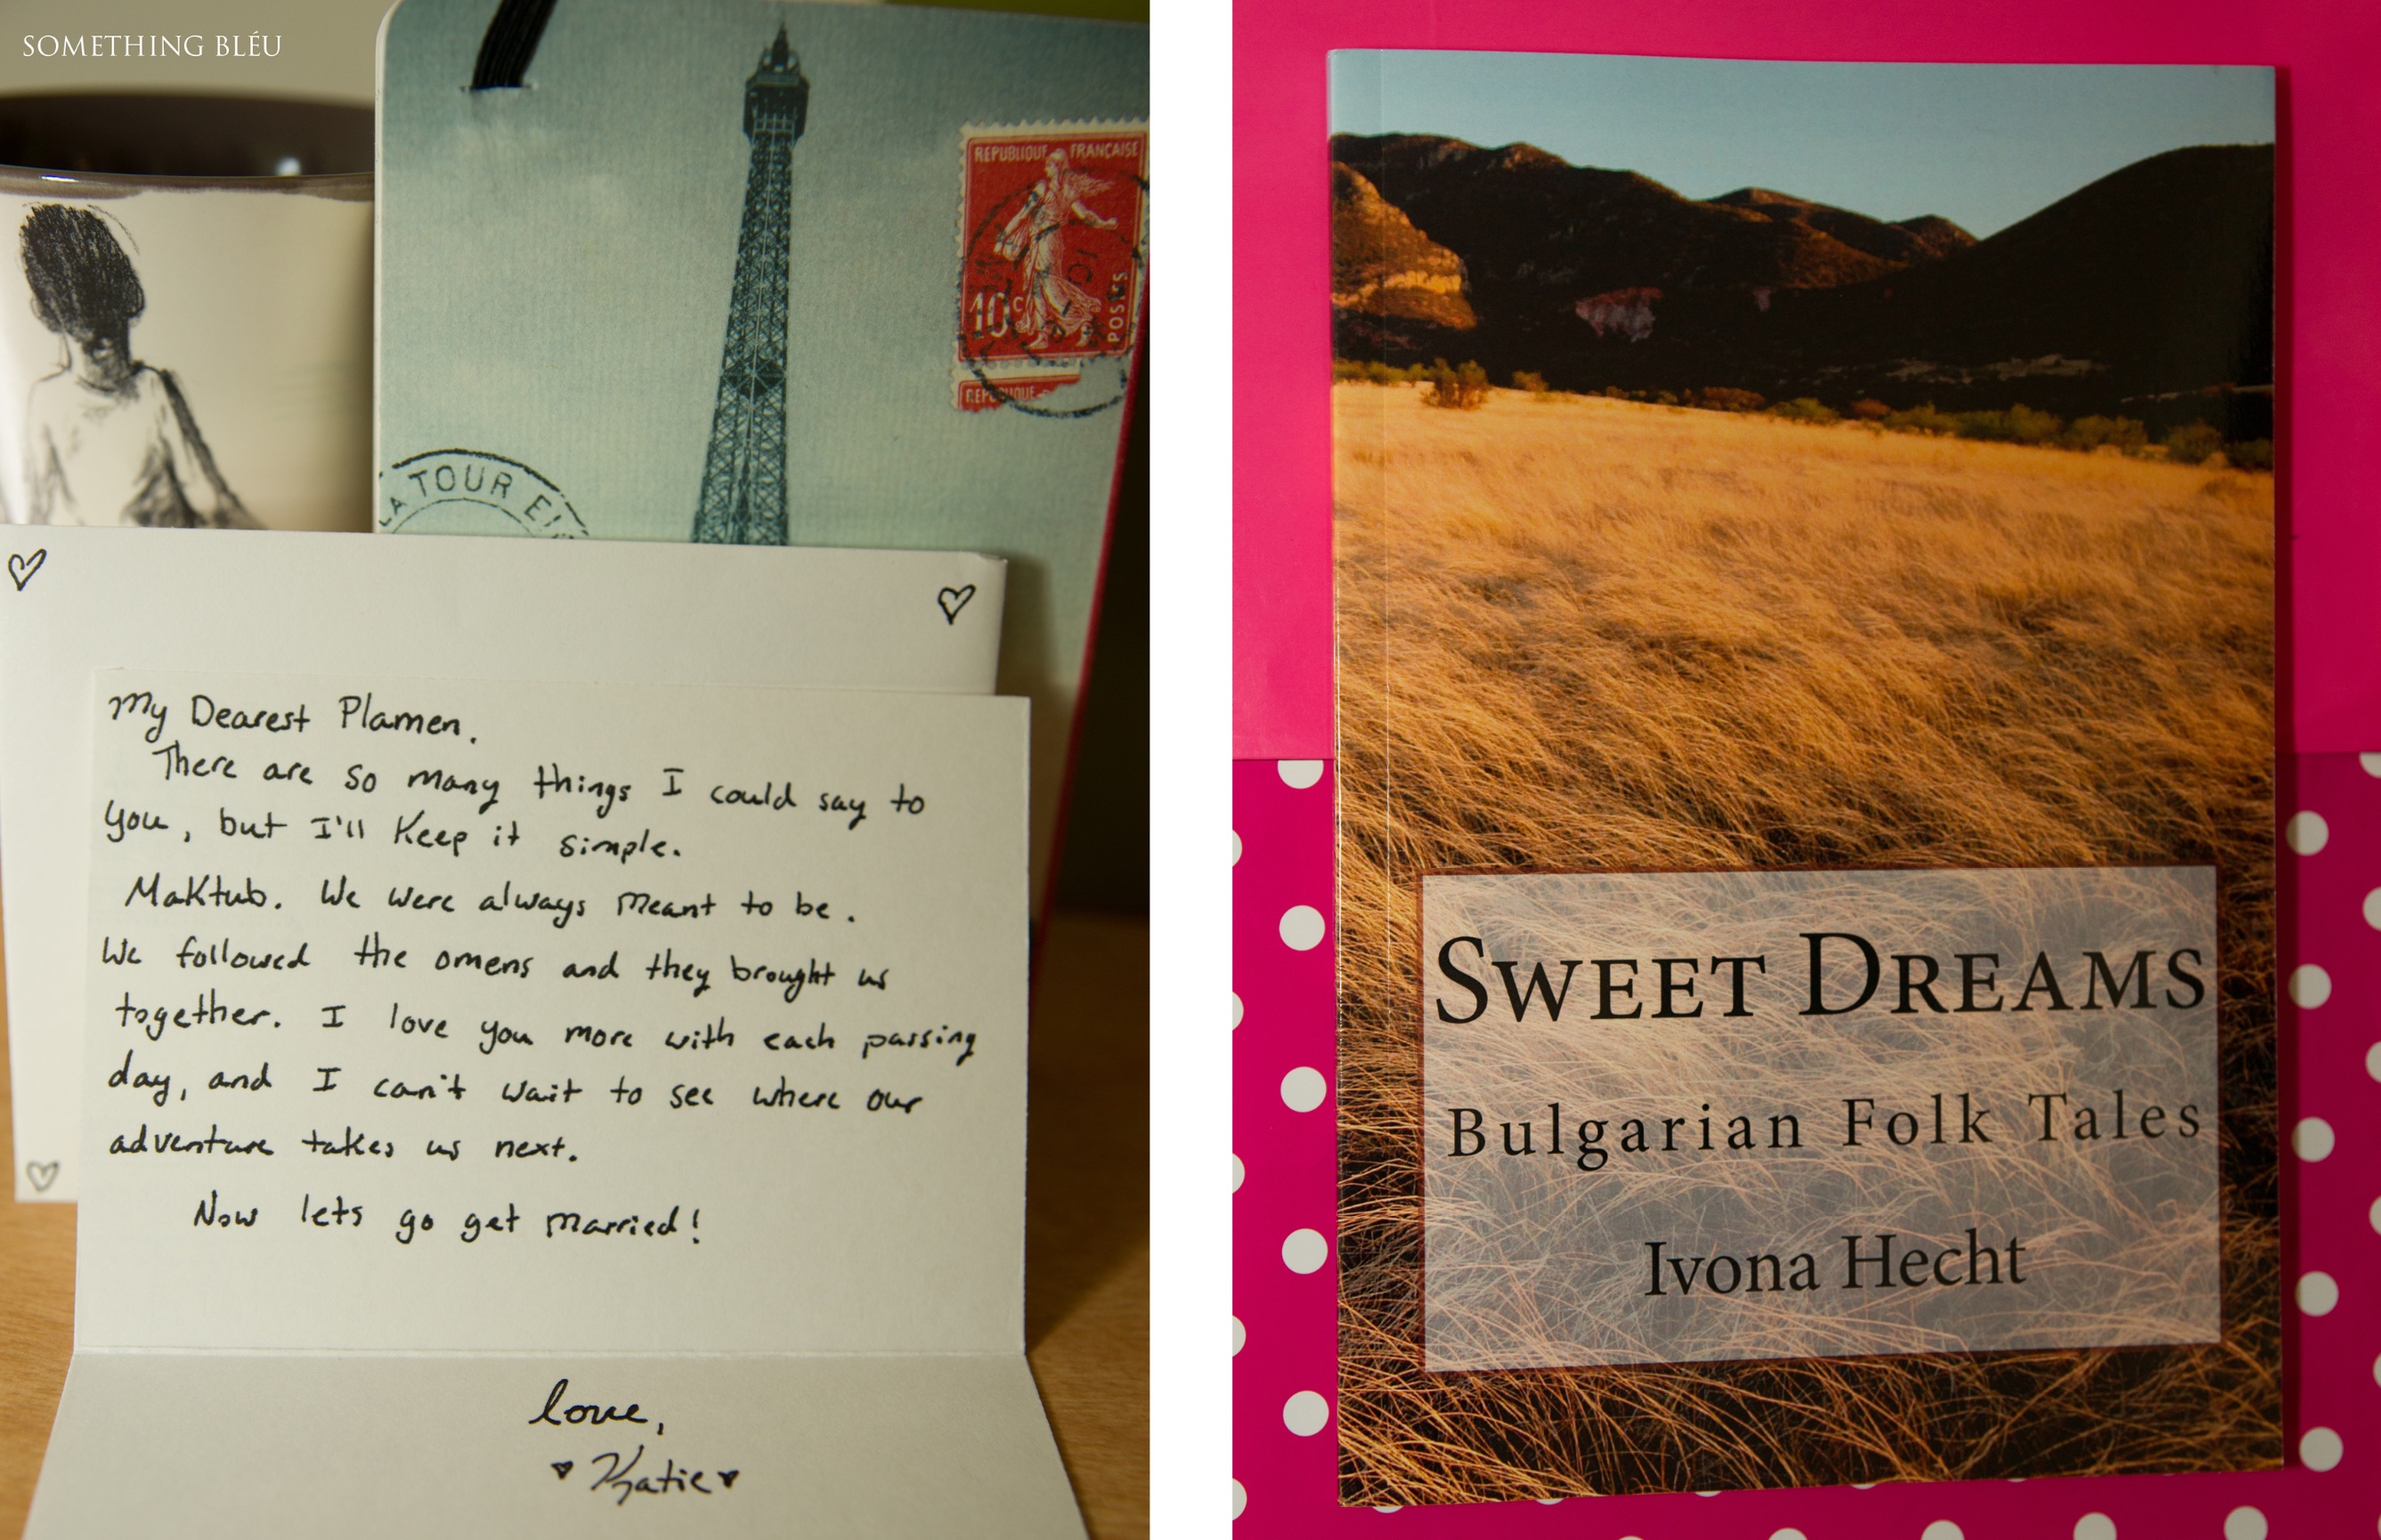 SOMETHING BLÉU
REPUBLIQUE FRANÇAISE
10c
POSTES
REPUBLIQUE
LA TOUR
My Dearest Plamen.
There are so many things I could say to
you, but I'll keep it simple.
Maktub. We were always meant to be.
We followed the omens and they brought us
together. I love you more with each passing
day, and I can't wait to see where our
adventure takes us next.
Now lets go get married!
love,
Katie
SWEET DREAMS
Bulgarian Folk Tales
Ivona Hecht